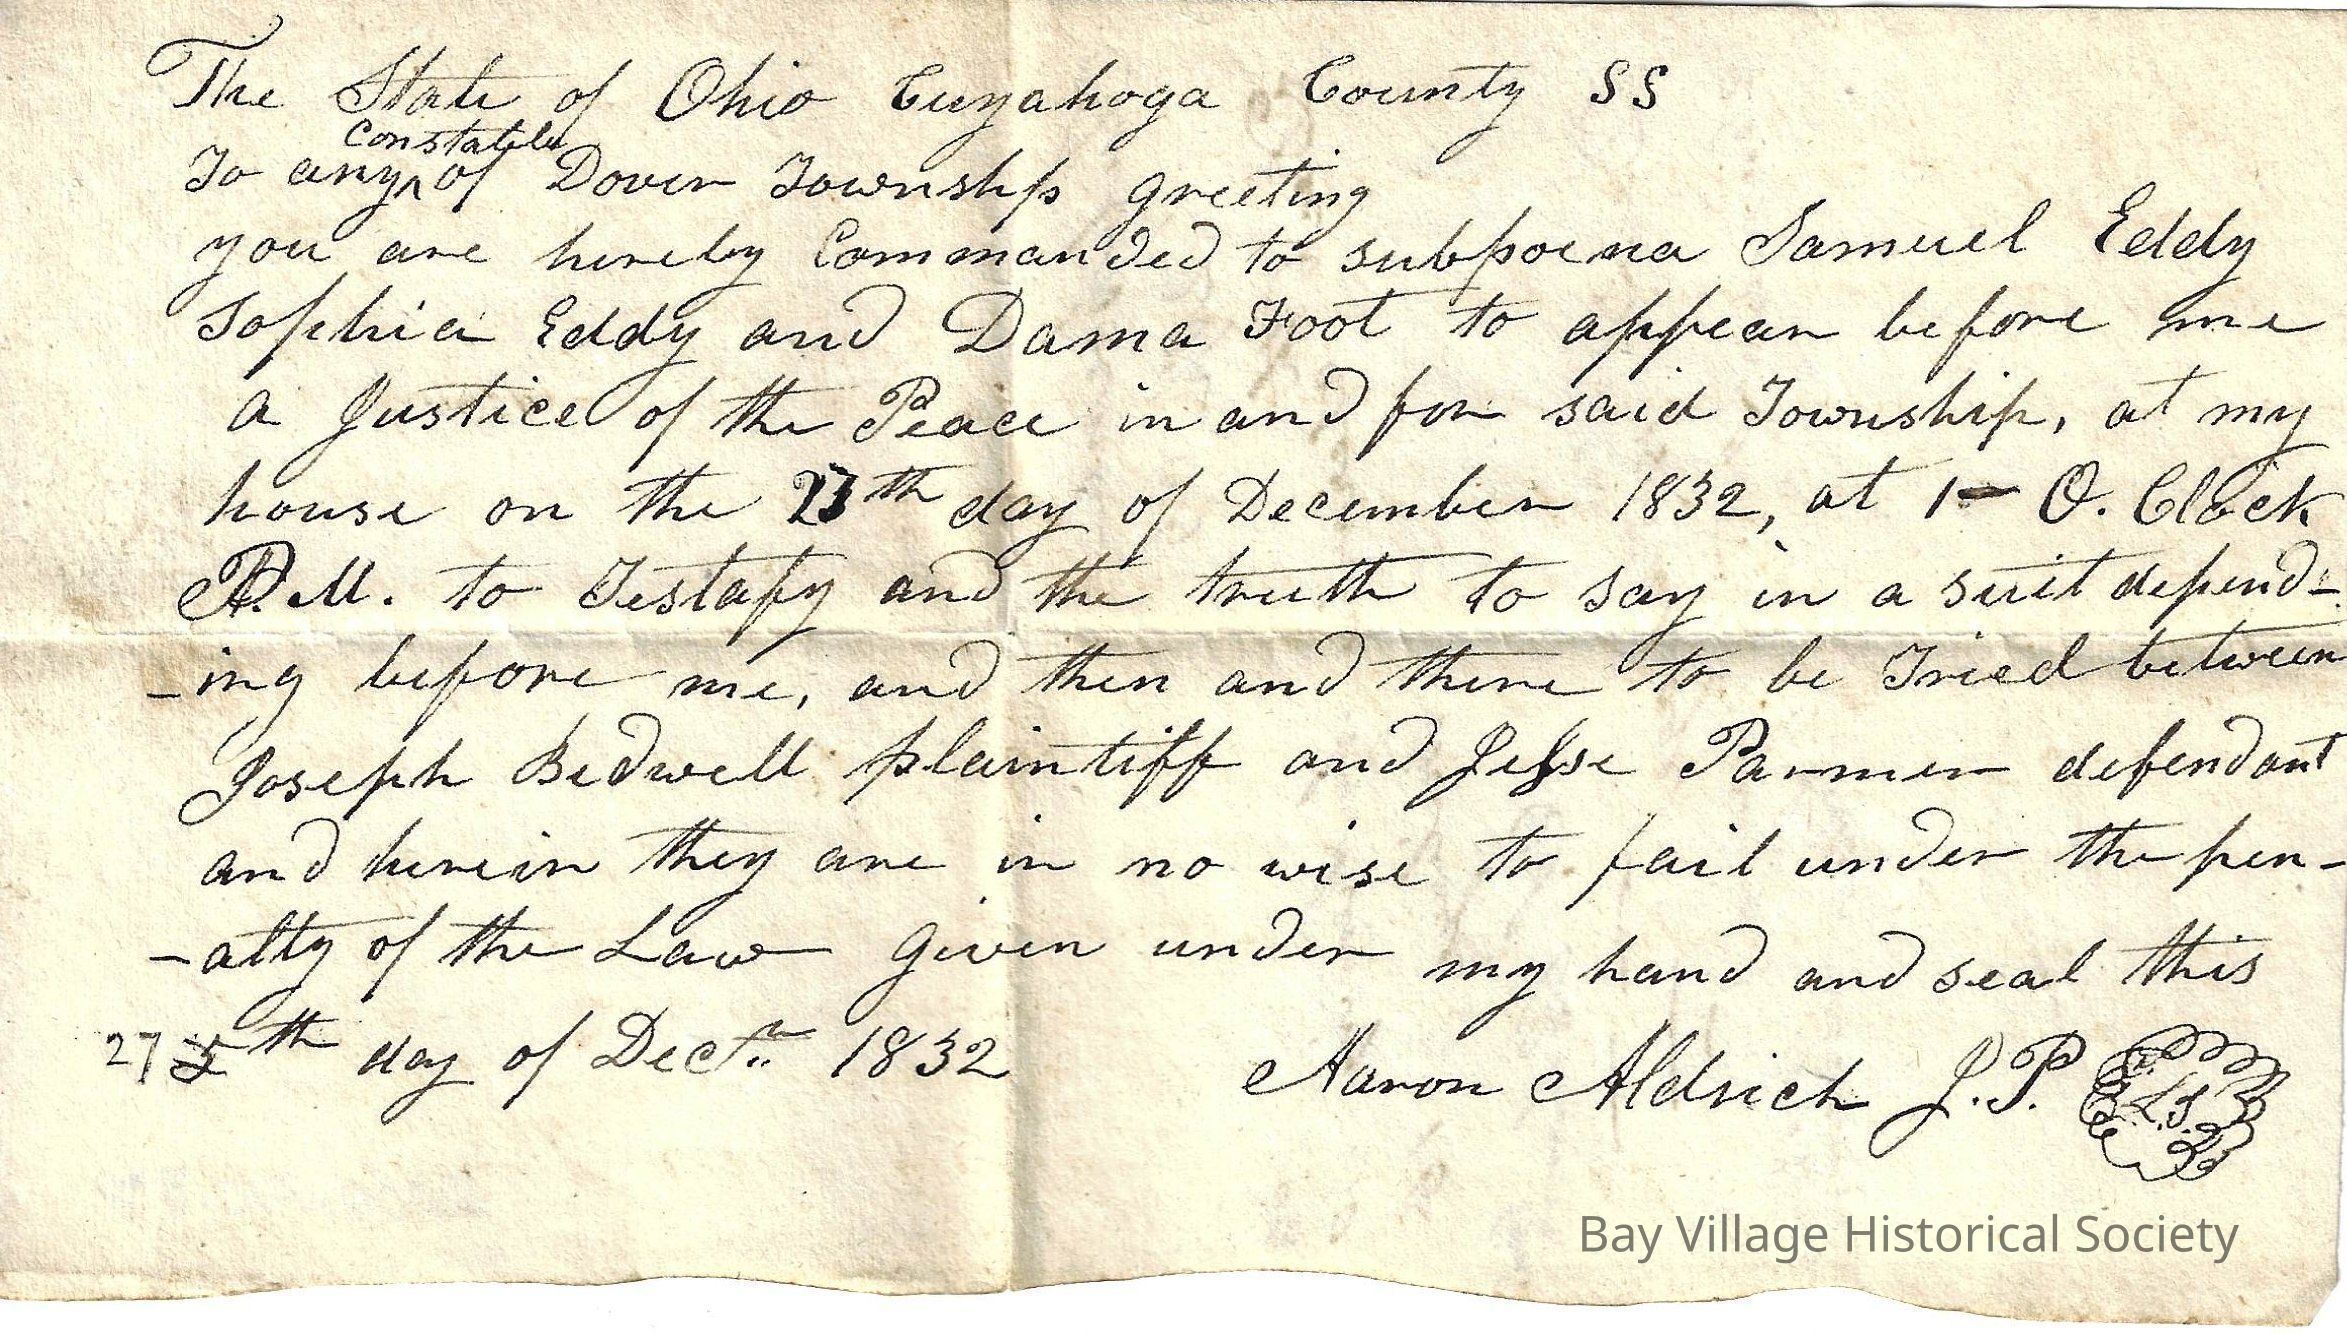 The State of Ohio Cuyahoga County SS
constable
To any ^ of Dover Township greeting
you are hereby Commanded to subpoena Samuel Eddy
Sophia Eddy and Dama Foot to appear before me
a Justice of the Peace in and for said Township, at my
house on the 27th day of December 1832, at 1 O. Clock
P.M. to Testafy and the truth to say in a suit depend-
-ing before me, and then and there to be Tried between
Joseph Bidwell plaintiff and Jesse Parmer defendant
and herein they are in no wise to fail under the pen-
-alty of the Law Given under my hand and seal this
27th day of Decr 1832
Aaron Aldrich J.P. L.S.
Bay Village Historical Society